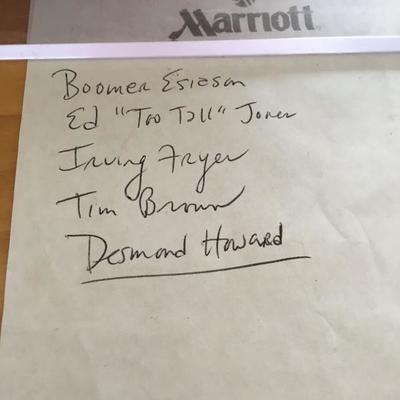 Marriott
Boomer Esiason
Ed "Too Tall" Jones
Irving Fryer
Tim Brown
Desmond Howard